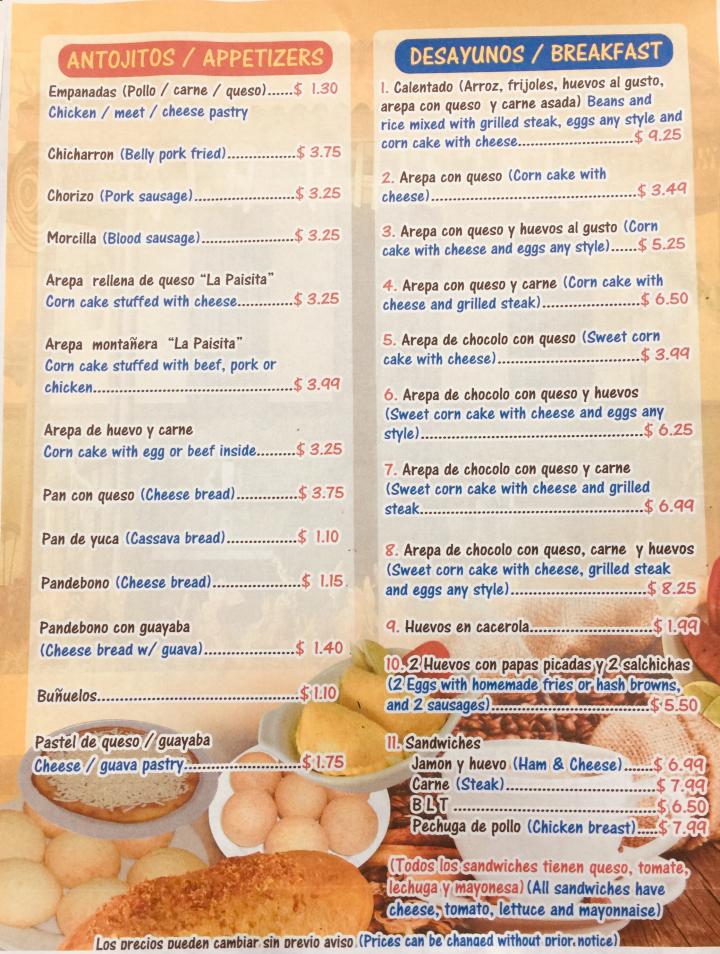 ANTOJITOS / APPETIZERS
Empanadas (Pollo / carne / queso)......$ 1.30
Chicken / meet / cheese pastry
Chicharron (Belly pork fried)................$ 3.75
Chorizo (Pork sausage)........................$ 3.25
Morcilla (Blood sausage)......................$ 3.25
Arepa rellena de queso "La Paisita"
Corn cake stuffed with cheese.............$ 3.25
Arepa montañera "La Paisita"
Corn cake stuffed with beef, pork or
chicken..............................................$ 3.99
Arepa de huevo y carne
Corn cake with egg or beef inside.........$ 3.25
Pan con queso (Cheese bread)..............$ 3.75
Pan de yuca (Cassava bread)................$ 1.10
Pandebono (Cheese bread)....................$ 1.15
Pandebono con guayaba
(Cheese bread w/ guava).....................$ 1.40
Buñuelos..............................................$1.10
Pastel de queso / guayaba
Cheese / guava pastry..........................$1.75
DESAYUNOS / BREAKFAST
1. Calentado (Arroz, frijoles, huevos al gusto,
arepa con queso y carne asada) Beans and
rice mixed with grilled steak, eggs any style and
corn cake with cheese..........................$ 9.25
2. Arepa con queso (Corn cake with
cheese)..............................................$ 3.49
3. Arepa con queso y huevos al gusto (Corn
cake with cheese and eggs any style)......$ 5.25
4. Arepa con queso y carne (Corn cake with
cheese and grilled steak)......................$ 6.50
5. Arepa de chocolo con queso (Sweet corn
cake with cheese)................................$ 3.99
6. Arepa de chocolo con queso y huevos
(Sweet corn cake with cheese and eggs any
style)..................................................$ 6.25
7. Arepa de chocolo con queso y carne
(Sweet corn cake with cheese and grilled
steak..................................................$ 6.99
8. Arepa de chocolo con queso, carne y huevos
(Sweet corn cake with cheese, grilled steak
and eggs any style)..............................$ 8.25
9. Huevos en cacerola...........................$ 1.99
10. 2 Huevos con papas picadas y 2 salchichas
(2 Eggs with homemade fries or hash browns,
and 2 sausages)...................................$ 5.50
11. Sandwiches
Jamon y huevo (Ham & Cheese)......$ 6.99
Carne (Steak)................................$ 7.99
B L T............................................$ 6.50
Pechuga de pollo (Chicken breast).....$ 7.99
(Todos los sandwiches tienen queso, tomate,
lechuga y mayonesa) (All sandwiches have
cheese, tomato, lettuce and mayonnaise)
Los precios pueden cambiar sin previo aviso (Prices can be changed without prior notice)